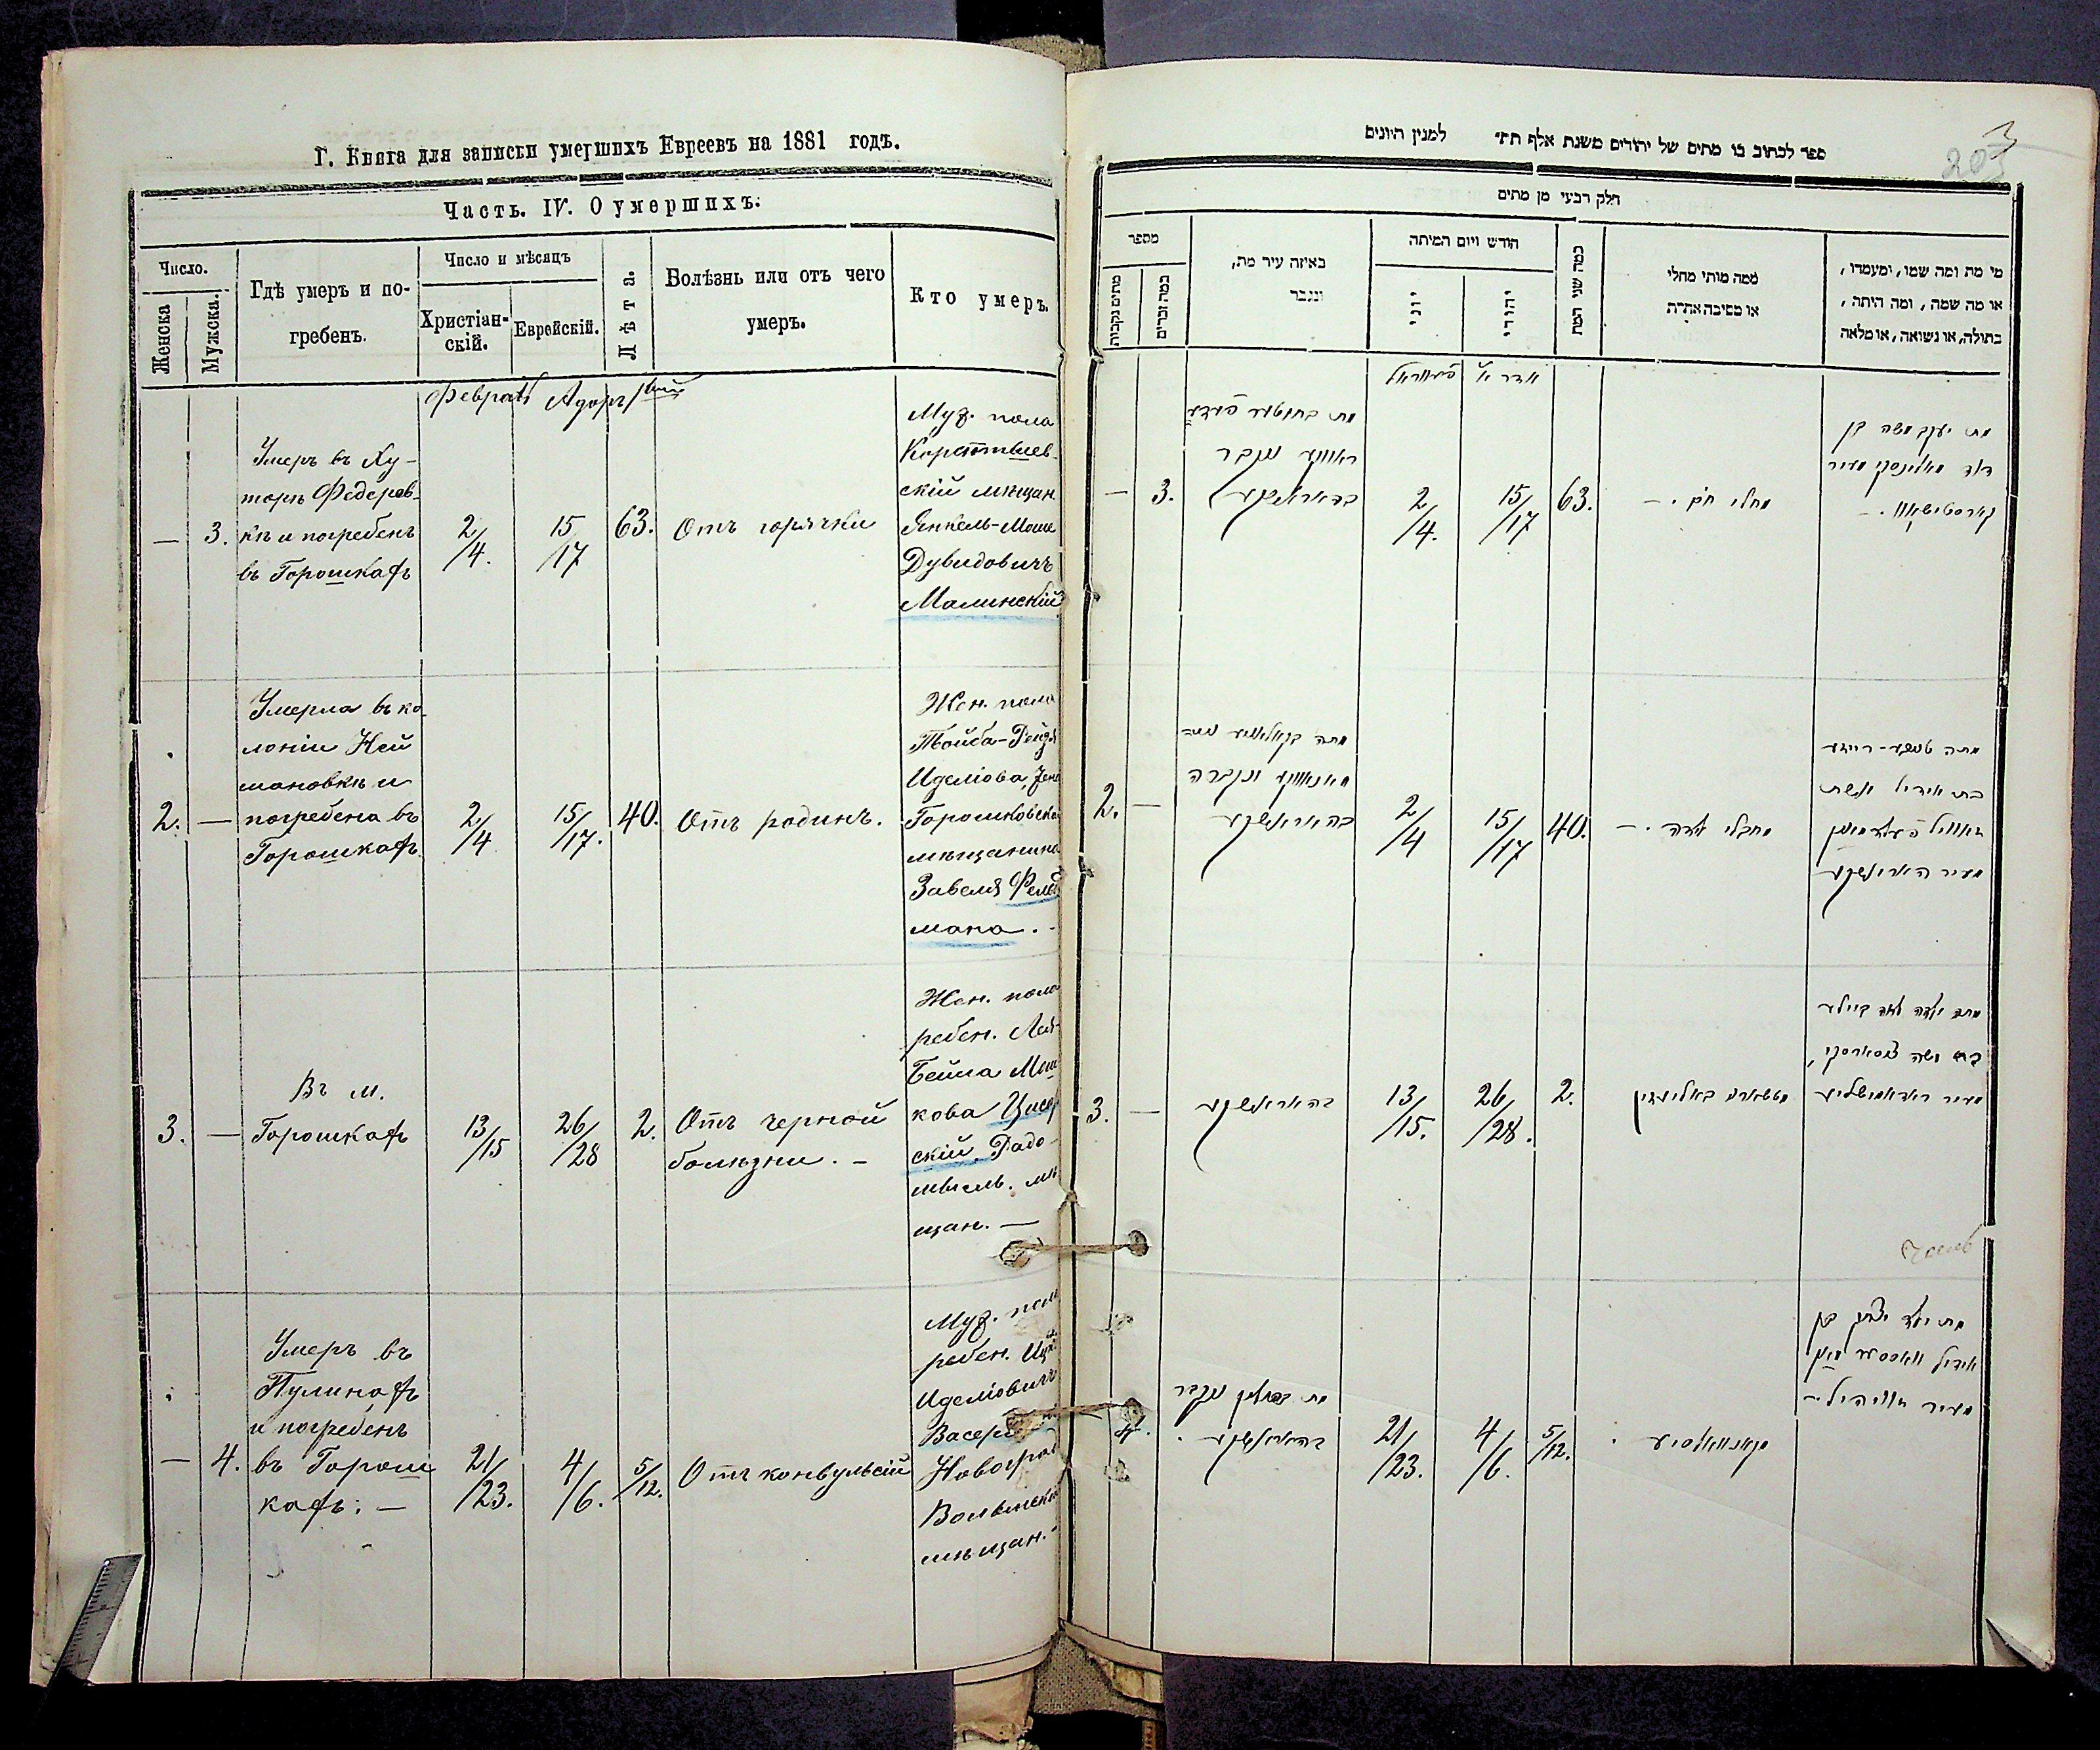 Г. Книга для записки умершихъ Евреевъ на 1881 годъ.
Часть. IV. О умершихъ.
Число.
Женска
Мужска.
Гдѣ умеръ и по-
гребенъ.
Число и мѣсяцъ
Христіан-
скій.
Еврейскій.
Лѣта.
Болѣзнь или отъ чего
умеръ.
Кто умеръ.
Февраль Адаръ
— 3.
Умеръ въ Ху-
торѣ Федоров-
кѣ и погребенъ
въ Горошкахъ
2/4.
15/17
63.
Отъ горячки
Муж. пола
скій мѣщан.
Янкель-Моше
Дувидовичъ
Малинскій
2. —
Умерла въ ко-
лоніи Ней
мановкѣ и
погребена въ
Горошкахъ
2/4
15/17.
40.
Отъ родинъ.
Жен. пола
Тойба-Рейзя
Иделіова, жена
Горошковска
мѣщанина
Завеля Фельд
мана. -
3. —
Въ м.
Горошкахъ
13/15
26/28
2.
Отъ черной
болѣзни. —
Жен. пола
ребен. Лея-
Бейла Мош
кова
скій, Радо-
мысль. мѣ
щан. —
— 4.
Умеръ въ
Пулинахъ
и погребенъ
въ Горош
кахъ. —
21/23.
4/6.
5/12.
Отъ конвульсій
Муж. пола
ребен.
Иделіовичъ
Васер
Новоград
Волынскій
мѣщан.
ספר לכתוב בו מתים של יהודים משנת אלף תת״ למנין היונים
203
3
חלק רביעי מן מתים
מספר
מתים נקבות
כמה זכרים
באיזה עיר מת,
ונגבר
חודש ויום המיתה
יוני
יהודי
כמה שני המת
ממה מותי מחלי
או מסיבה אחרת
מי מת ומה שמו, ומעמדו,
או מה שמה, ומה היתה,
בתולה, או נשואה, או מלאה
פעווראל אדר א׳
— 3.
ונקבר
בהאראשקע
2/4.
15/17
63.
מחלי חם . -
מת יעקב משה בן
דוד מאלינסקי מעיר
2. —
ונקברה
בהאראשקע
2/4
15/17
40.
מחבלי לידה . -
מתה טויבע - רייזע
בת אידיל אשת
זאוויל פעלדמאן
מעיר האראשקע
3. —
בהאראשקע
13/15.
26/28.
2.
מתה ילדה לאה ביילע
מעיר ראדאמישליע
4.
ונקבר
בהאראשקע
21/23.
4/6.
5/12.
קאנוואלסיע
מת ילד יצחק בן
אידיל וואסערמאן
מעיר זוויהיל -